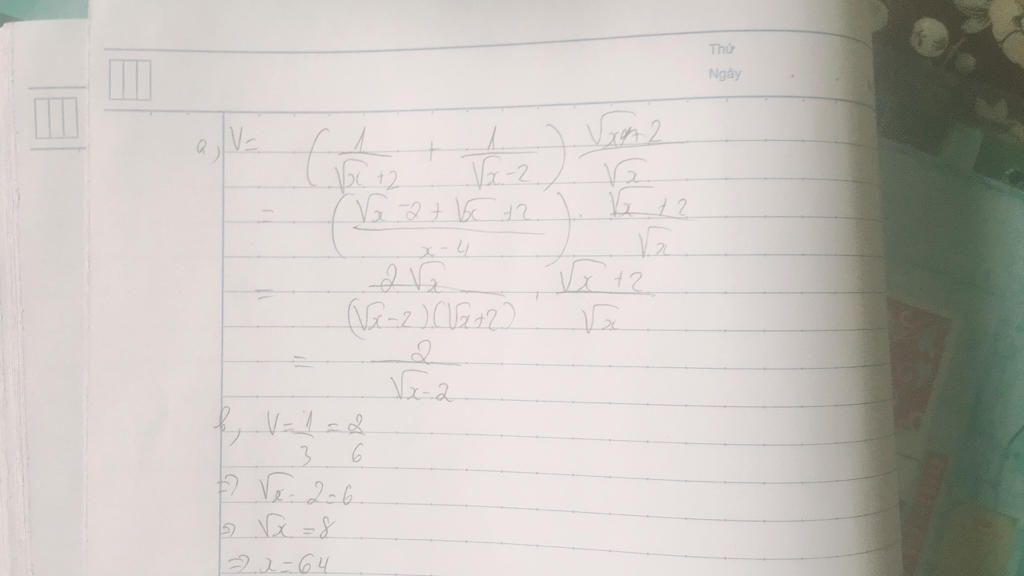 Thứ
Ngày
a, V = (1/(√x + 2) + 1/(√x - 2)) (√x + 2)/√x
= ((√x - 2 + √x + 2)/(x - 4)) . (√x + 2)/√x
= 2√x/((√x - 2)(√x + 2)) . (√x + 2)/√x
= 2/(√x - 2)
b, V = 1/3 = 2/6
=> √x - 2 = 6
=> √x = 8
=> x = 64